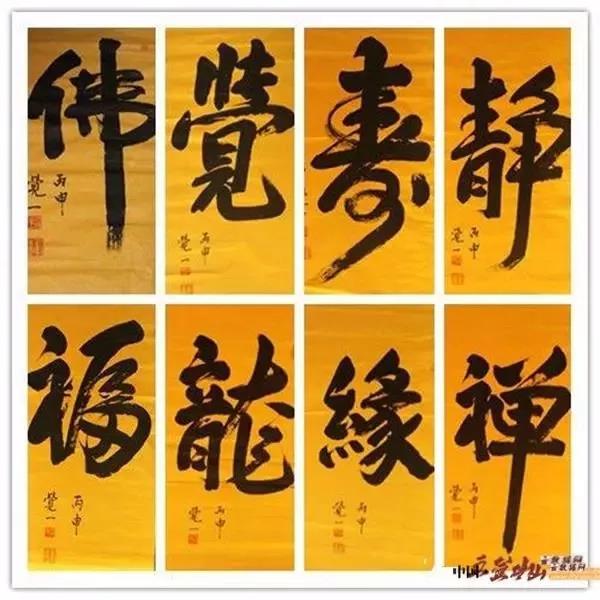 佛
丙申
覺一
覺
丙申
覺一
寿
静
丙申
覺一
福
丙申
覺一
龍
丙申
覺一
緣
丙申
覺一
禅
丙申
覺一
中国